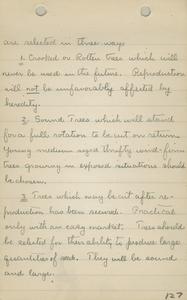 are selected in three ways
1. Crooked or Rotten trees which will
never be used in the future. Reproduction
will not be unfavorably affected by
heredity.
2. Sound Trees which will stand
for a full rotation to be cut on return.
Young medium aged thrifty wind-firm
trees growing in exposed situations should
be chosen.
3. Trees which may be cut after re-
production has been secured. Practical
only with an easy market. Trees should
be selected for their ability to produce large
quantities of seed. They will be sound
and large.
127